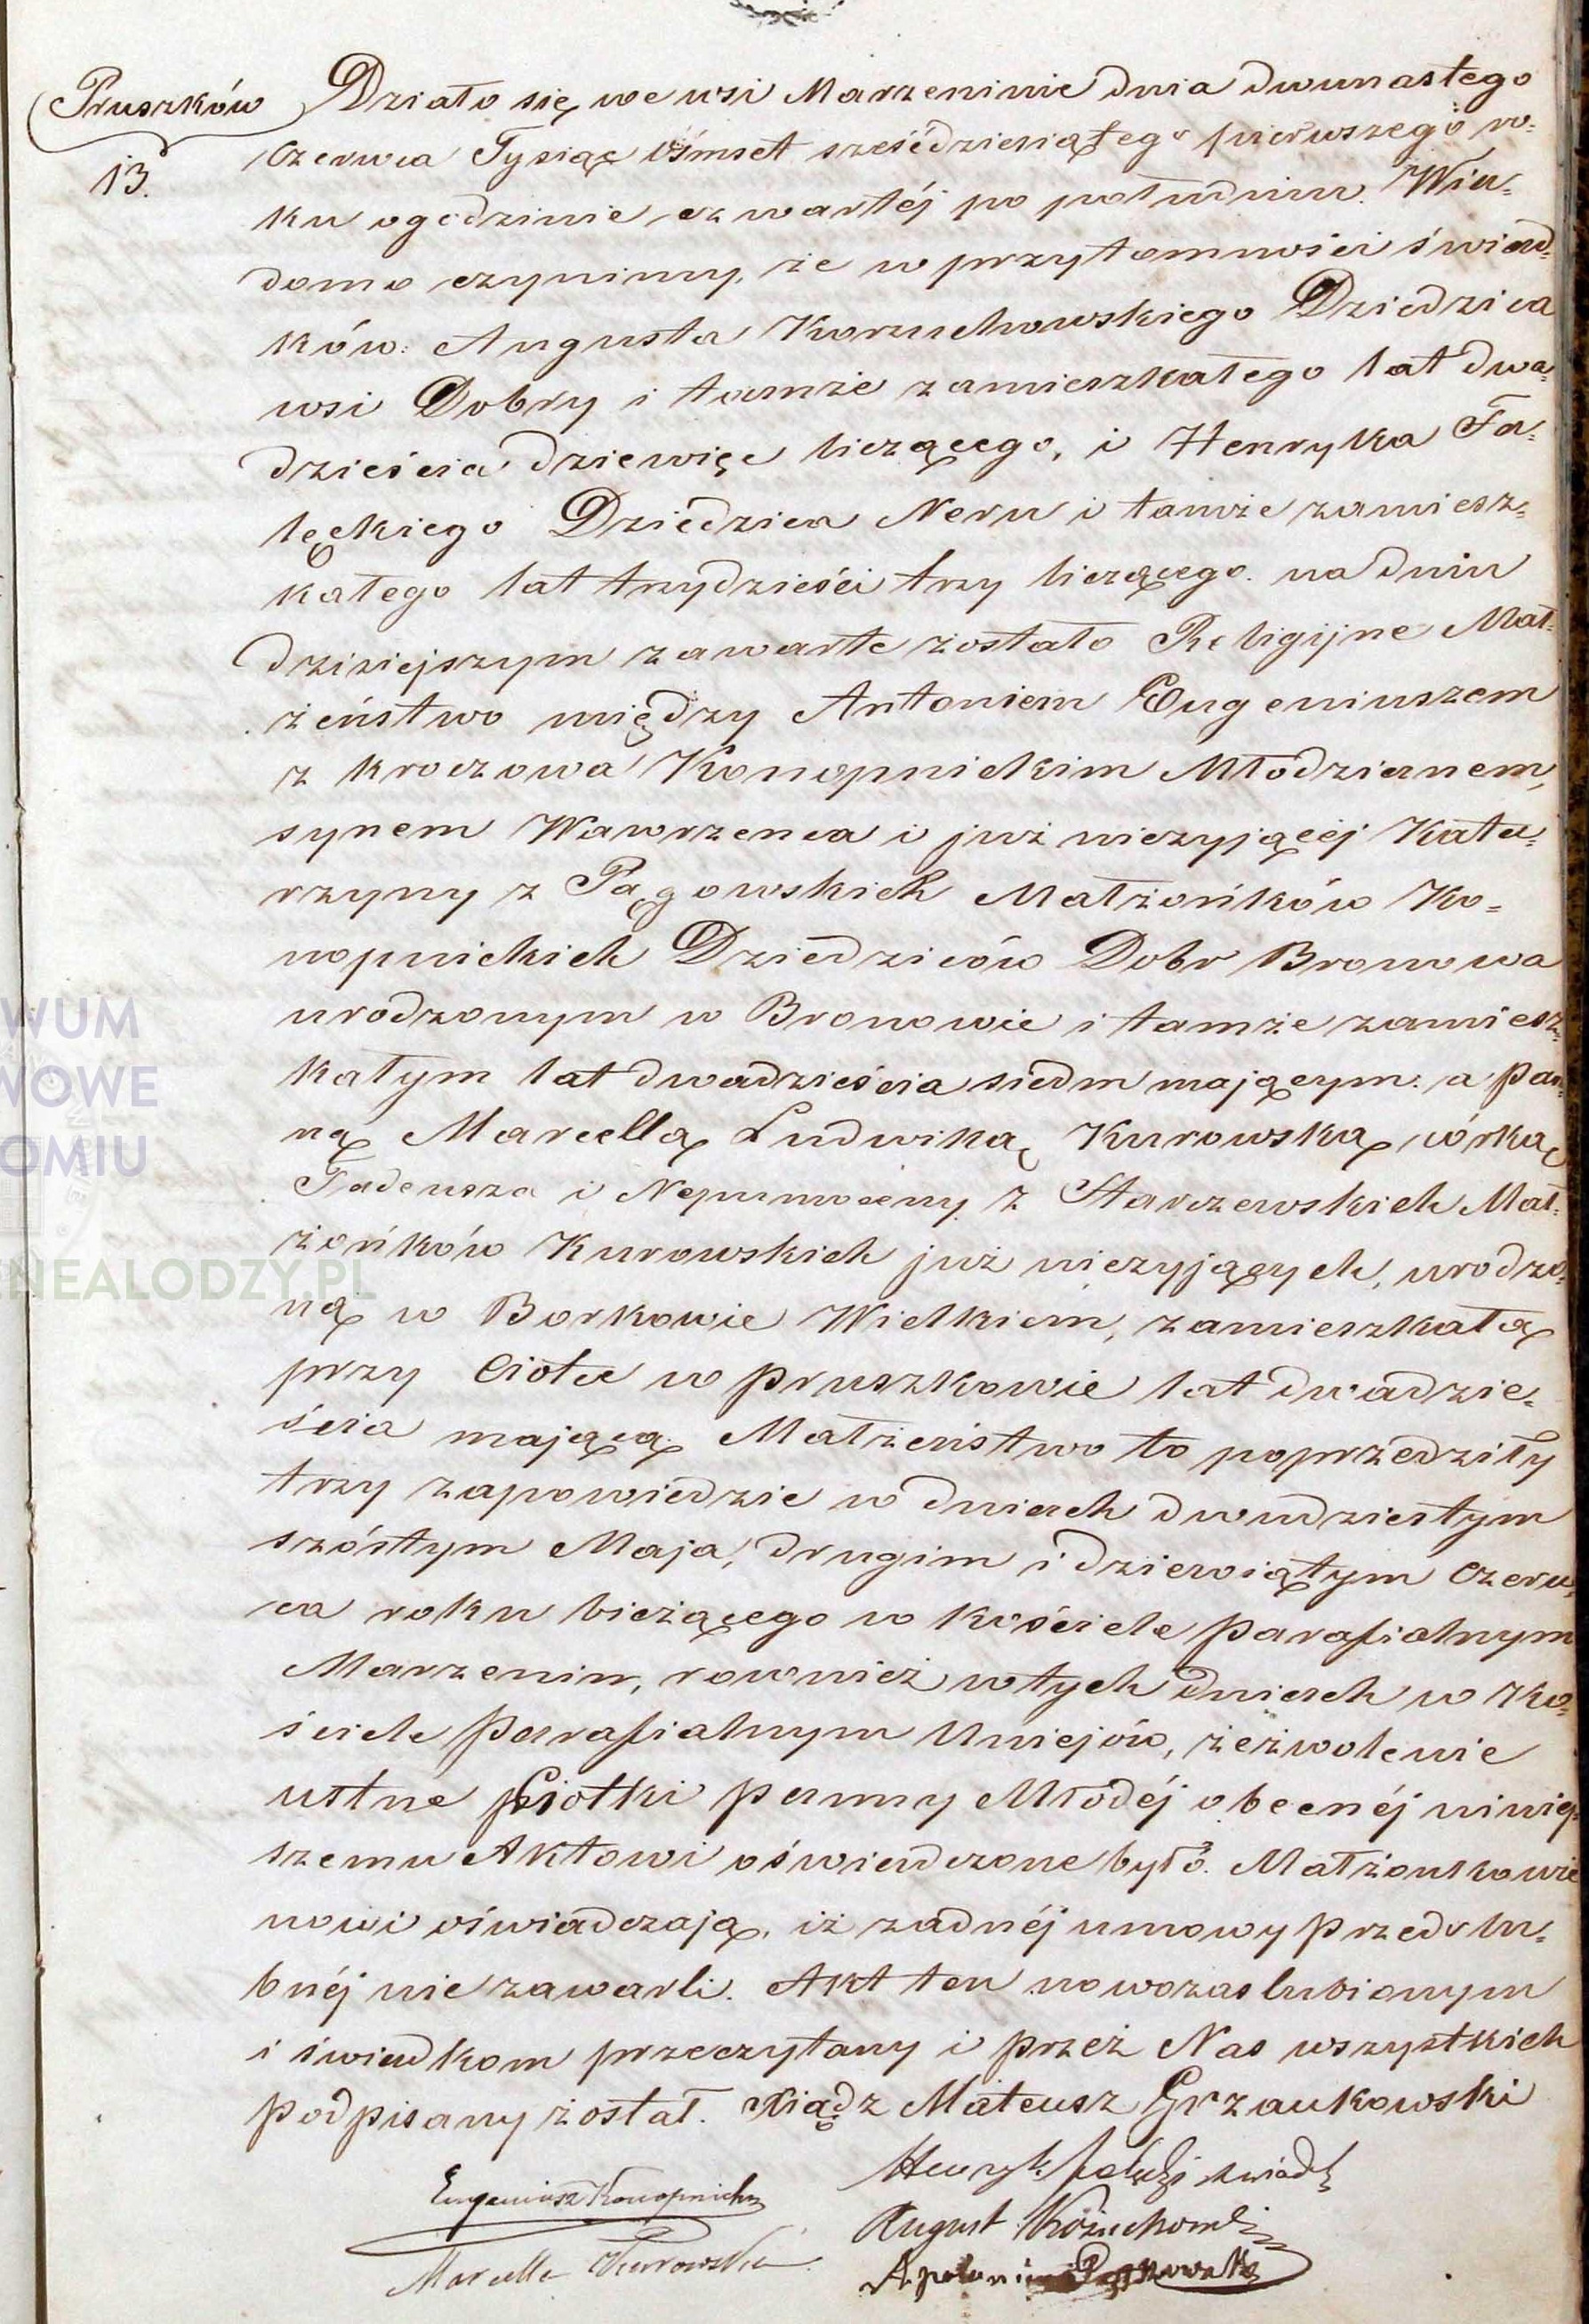 Pruszków
13.
Działo się we wsi Marzeninie dnia dwunastego
Czerwca Tysiąc ośmset sześćdziesiątego pierwszego ro=
ku o godzinie czwartéj po południu. Wia=
domo czynimy, że w przytomności świad=
ków: Augusta Kożuchowskiego Dziedzica
wsi Dobry i tamże zamieszkałego lat dwa=
dzieścia dziewięc liczącego, i Henryka Fa=
lęckiego Dziedzica Neru i tamże zamiesz=
kałego lat trzydzieści trzy liczącego. na dniu
dzisiejszym zawarte zostało Religijne Mał=
żeństwo między Antoniem Eugeniuszem
z Kroczowa Konopnickim Młodzianem,
synem Wawrzenca i już nieżyjącéj Kata=
rzyny z Pągowskich Małżońków Ko=
nopnickich Dziedziców Dobr Bronowa
urodzonym w Bronowie i tamże zamiesz=
kałym lat dwadzieścia siedm mającym. a Pan=
ną Marcellą Ludwiką Kurowską córką
Tadeusza i Nepumoceny z Starczewskich Mał=
żońków Kurowskich już nieżyjących, urodzo=
ną w Borkowie Wielkiem, zamieszkałą
przy Ciotce w Pruszkowie lat dwadzie=
ścia mającą. Małżeństwo to poprzedziły
trzy zapowiedzie w dniach dwudziestym
szóstym Maja, drugim i dziewiątym Czerw=
ca roku bieżącego w kościele Parafialnym
Marzenin, rownież w tych dniach w Ko=
ściele Parafialnym Uniejów, zezwolenie
ustne Ciotki Panny Młodéj obecnéj niniej=
szemu Aktowi oświadczone było. Małżonkowie
nowi oświadczają, iż żadnéj umowy przedslu=
bnéj nie zawarli. Akt ten nowozaslubionym
i świadkom przeczytany i przez Nas wszystkich
podpisany został. Xiądz Mateusz Grzankowski
Henryk Falęcki świadk
Eugeniusz Konopnicki
August Kożuchowski
Marcella Kurowska
Apolonia